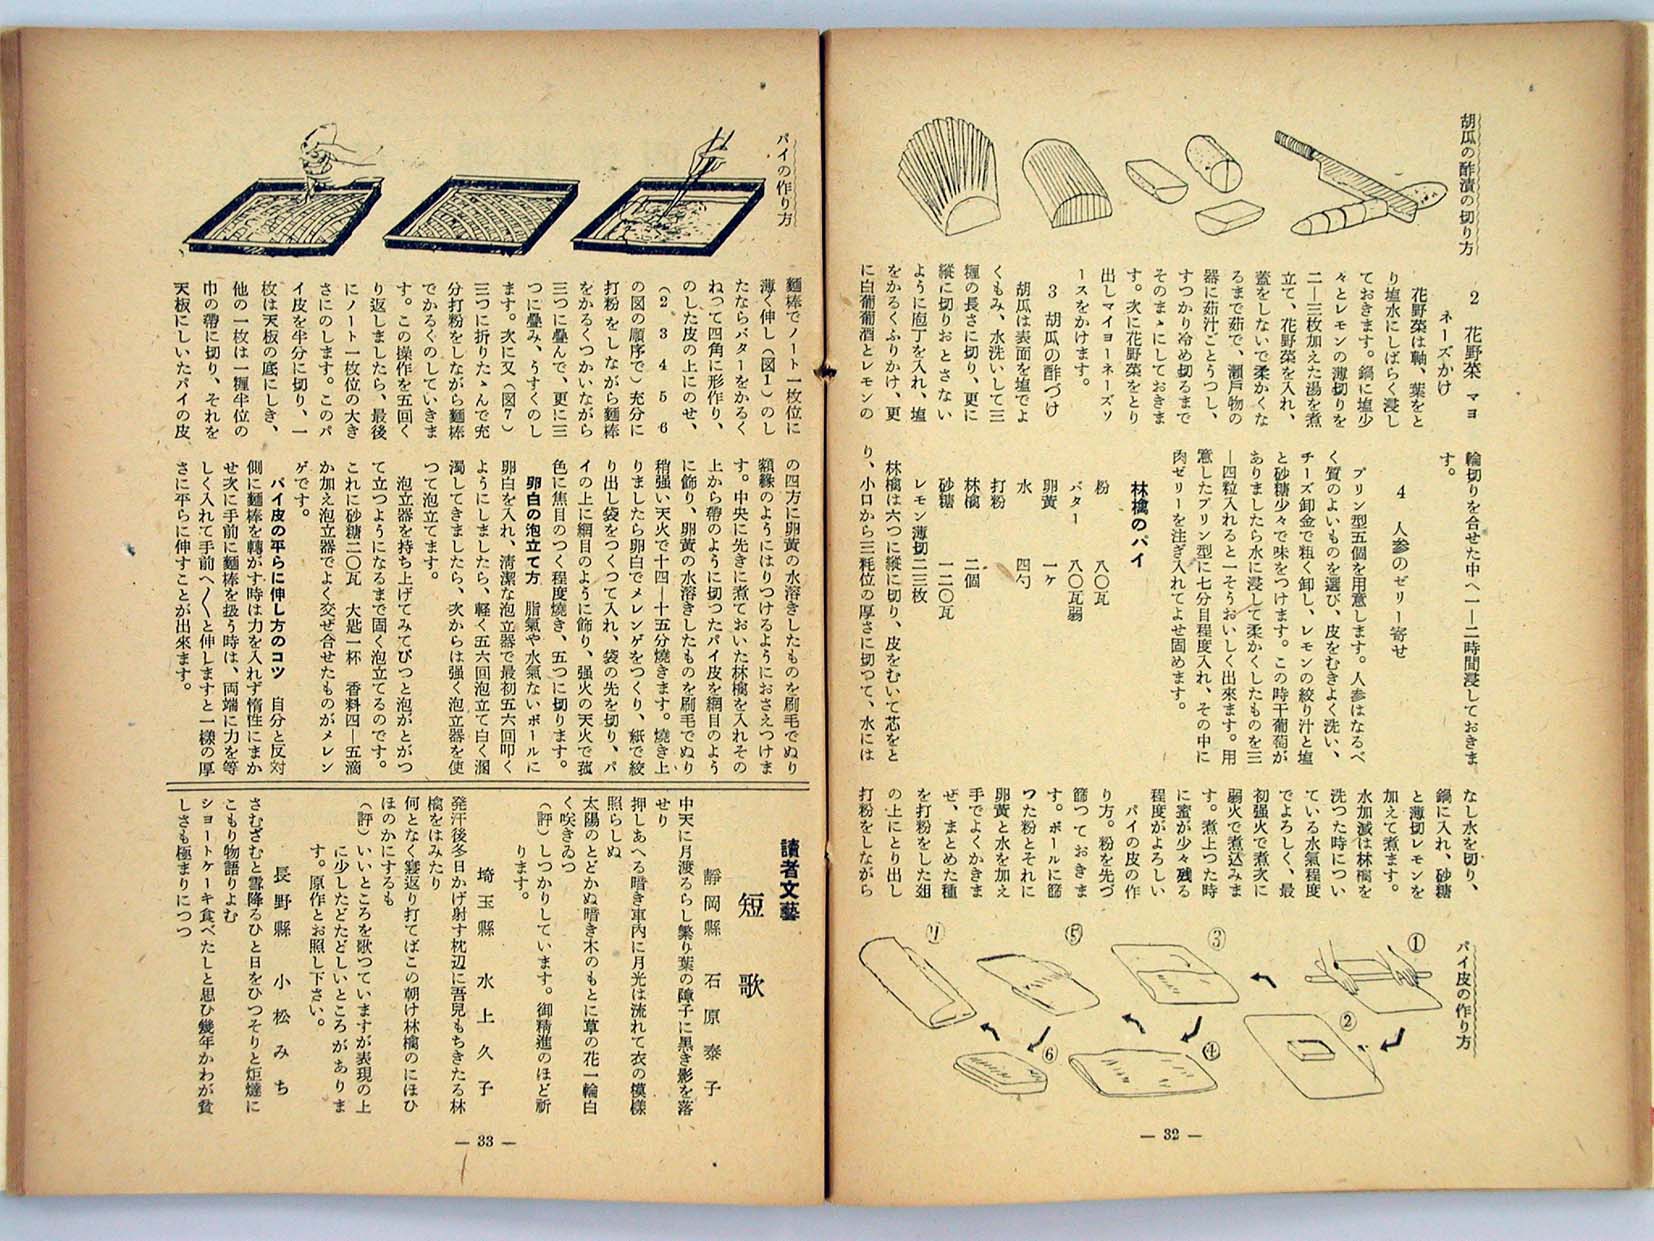 胡瓜の酢漬の切り方
2　花野菜　マヨ
ネーズかけ
花野菜は軸、葉をと
り塩水にしばらく浸し
ておきます。鍋に塩少
々とレモンの薄切りを
二―三枚加えた湯を煮
立て、花野菜を入れ、
蓋をしないで柔かくな
るまで茹で、瀬戸物の
器に茹汁ごとうつし、
すつかり冷め切るまで
そのまゝにしておきま
す。次に花野菜をとり
出しマイヨーネーズソ
ースをかけます。
3　胡瓜の酢づけ
胡瓜は表面を塩でよ
くもみ、水洗いして三
糎の長さに切り、更に
縦に切りおとさない
ように庖丁を入れ、塩
をかるくふりかけ、更
に白葡萄酒とレモンの
輪切りを合せた中へ一―二時間浸しておきま
す。
4　人参のゼリー寄せ
プリン型五個を用意します。人参はなるべ
く質のよいものを選び、皮をむきよく洗い、
チーズ卸金で粗く卸し、レモンの絞り汁と塩
と砂糖少々で味をつけます。この時干葡萄が
ありましたら水に浸して柔かくしたものを三
―四粒入れると一そうおいしく出来ます。用
意したプリン型に七分目程度入れ、その中に
肉ゼリーを注ぎ入れてよせ固めます。
林檎のパイ
粉　八〇瓦
バター　八〇瓦弱
卵黄　一ヶ
水　四勺
打粉
林檎　二個
砂糖　一二〇瓦
レモン薄切二三枚
林檎は六つに縦に切り、皮をむいて芯をと
り、小口から三粍位の厚さに切つて、水には
なし水を切り、
鍋に入れ、砂糖
と薄切レモンを
加えて煮ます。
水加減は林檎を
洗つた時につい
ている水氣程度
でよろしく、最
初强火で煮次に
弱火で煮込みま
す。煮上つた時
に蜜が少々残る
程度がよろしい
パイの皮の作
り方。粉を先づ
篩つておきま
す。ボールに篩
つた粉とそれに
卵黄と水を加え
手でよくかきま
ぜ、まとめた種
を打粉をした爼
の上にとり出し
打粉をしながら
パイ皮の作り方
①
②
③
④
⑤
⑥
⑦
― 32 ―
パイの作り方
麵棒でノート一枚位に
薄く伸し（図1）のし
たならバターをかるく
ねつて四角に形作り、
のした皮の上にのせ、
（2　3　4　5　6
の図の順序で）充分に
打粉をしながら麵棒
をかるくつかいながら
三つに疊んで、更に三
つに疊み、うすくのし
ます。次に又（図7）
三つに折りたゝんで充
分打粉をしながら麵棒
でかるくのしていきま
す。この操作を五回く
り返しましたら、最後
にノート一枚位の大き
さにのします。このパ
イ皮を半分に切り、一
枚は天板の底にしき、
他の一枚は一糎半位の
巾の帶に切り、それを
天板にしいたパイの皮
の四方に卵黄の水溶きしたものを刷毛でぬり
額縁のようにはりつけるようにおさえつけま
す。中央に先きに煮ておいた林檎を入れその
上から帶のように切つたパイ皮を網目のよう
に飾り、卵黄の水溶きしたものを刷毛でぬり
稍强い天火で十四―十五分燒きます。燒き上
りましたら卵白でメレンゲをつくり、紙で絞
り出し袋をつくつて入れ、袋の先を切り、パ
イの上に網目のように飾り、强火の天火で狐
色に焦目のつく程度燒き、五つに切ります。
卵白の泡立て方　脂氣や水氣ないボールに
卵白を入れ、清潔な泡立器で最初五六回叩く
ようにしましたら、軽く五六回泡立て白く溷
濁してきましたら、次からは强く泡立器を使
つて泡立てます。
泡立器を持ち上げてみてぴつと泡がとがつ
て立つようになるまで固く泡立てるのです。
これに砂糖二〇瓦　大匙一杯　香料四―五滴
か加え泡立器でよく交ぜ合せたものがメレン
ゲです。
パイ皮の平らに伸し方のコツ　自分と反対
側に麵棒を轉がす時は力を入れず惰性にまか
せ次に手前に麵棒を扱う時は、両端に力を等
しく入れて手前へ〳〵と伸しますと一樣の厚
さに平らに伸すことが出来ます。
讀者文藝
短歌
靜岡縣　石原泰子
中天に月渡るらし繁り葉の障子に黒き影を落
せり
押しあへる暗き車內に月光は流れて衣の模樣
照らしぬ
太陽のとどかぬ暗き木のもとに草の花一輪白
く咲きゐつ
（評）しつかりしています。御精進のほど祈
ります。
埼玉縣　水上久子
発汗後冬日かげ射す枕辺に吾見もちきたる林
檎をはみたり
何となく寢返り打てばこの朝け林檎のにほひ
ほのかにするも
（評）いいところを歌つていますが表現の上
に少したどたどしいところがありま
す。原作とお照し下さい。
長野縣　小松みち
さむざむと雪降るひと日をひつそりと炬燵に
こもり物語りよむ
ショートケーキ食べたしと思ひ幾年かわが貧
しさも極まりにつつ
― 33 ―